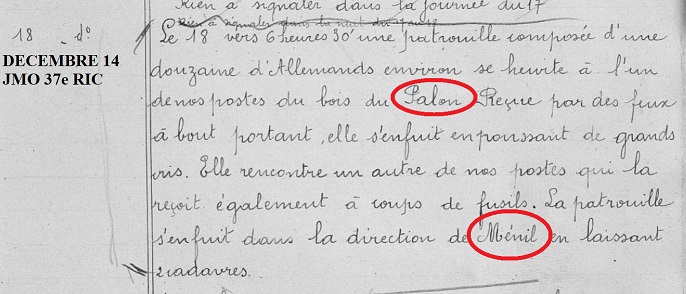 Rien à signaler dans la journée du 17
Rien à signaler dans la nuit du 17 au 18
18 - do
DECEMBRE 14
JMO 37e RIC
Le 18 vers 6 heures 30' une patrouille composée d'une
douzaine d'Allemands environ se heurte à l'un
de nos postes du bois du Salon Reçue par des feux
à bout portant, elle s'enfuit en poussant de grands
cris. Elle rencontre un autre de nos postes qui la
reçoit également à coups de fusils. La patrouille
s'enfuit dans la direction de Ménil en laissant
2 cadavres.